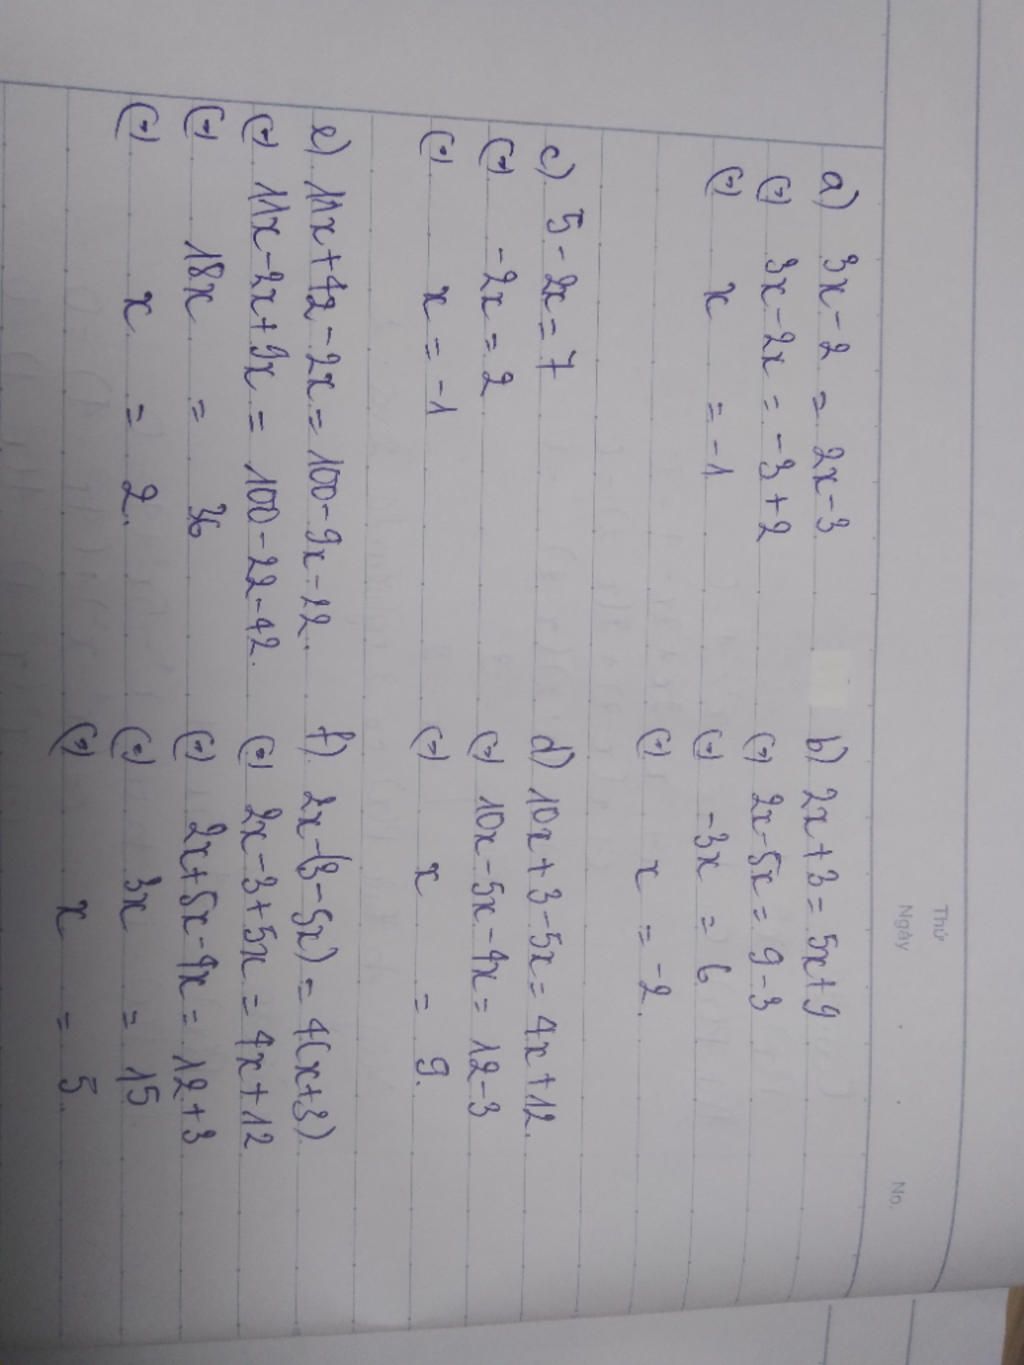 Thứ
Ngày
No.
a) 3x - 2 = 2x - 3
(=) 3x - 2x = -3 + 2
(=) x = -1
b) 2x + 3 = 5x + 9
(=) 2x - 5x = 9 - 3
(=) -3x = 6
(=) x = -2.
c) 5 - 2x = 7
(=) -2x = 2
(=) x = -1
d) 10x + 3 - 5x = 4x + 12.
(=) 10x - 5x - 4x = 12 - 3
(=) x = 9.
e) 11x + 42 - 2x = 100 - 9x - 22.
(=) 11x - 2x + 9x = 100 - 22 - 42.
(=) 18x = 36
(=) x = 2.
f) 2x - (3 - 5x) = 4(x + 3)
(=) 2x - 3 + 5x = 4x + 12
(=) 2x + 5x - 4x = 12 + 3
(=) 3x = 15
(=) x = 5.